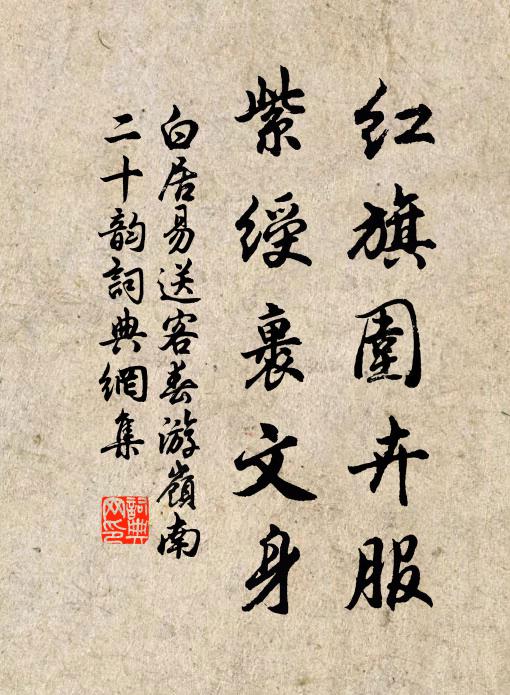 红旗圍卉服
紫綬裹文身
白居易送客春游嶺南
二十韵詞典網集
詞典网印